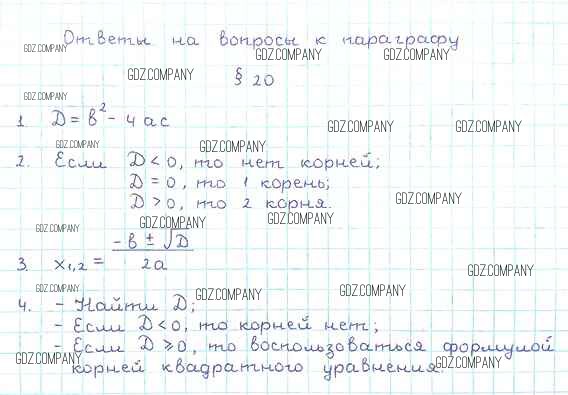 Ответы на вопросы к параграфу
GDZ.COMPANY GDZ.COMPANY GDZ.COMPANY
GDZ.COMPANY § 20
GDZ.COMPANY
1. D = b² - 4ac
GDZ.COMPANY GDZ.COMPANY
GDZ.COMPANY GDZ.COMPANY
2. Если D < 0, то нет корней;
D = 0, то 1 корень;
D > 0, то 2 корня.
GDZ.COMPANY
GDZ.COMPANY GDZ.COMPANY GDZ.COMPANY
3. x₁,₂ = (-b ± √D) / 2a
GDZ.COMPANY
GDZ.COMPANY GDZ.COMPANY GDZ.COMPANY
4. - Найти D;
- Если D < 0, то корней нет;
- Если D ⩾ 0, то воспользоваться формулой
GDZ.COMPANY GDZ.COMPANY
корней квадратного уравнения.